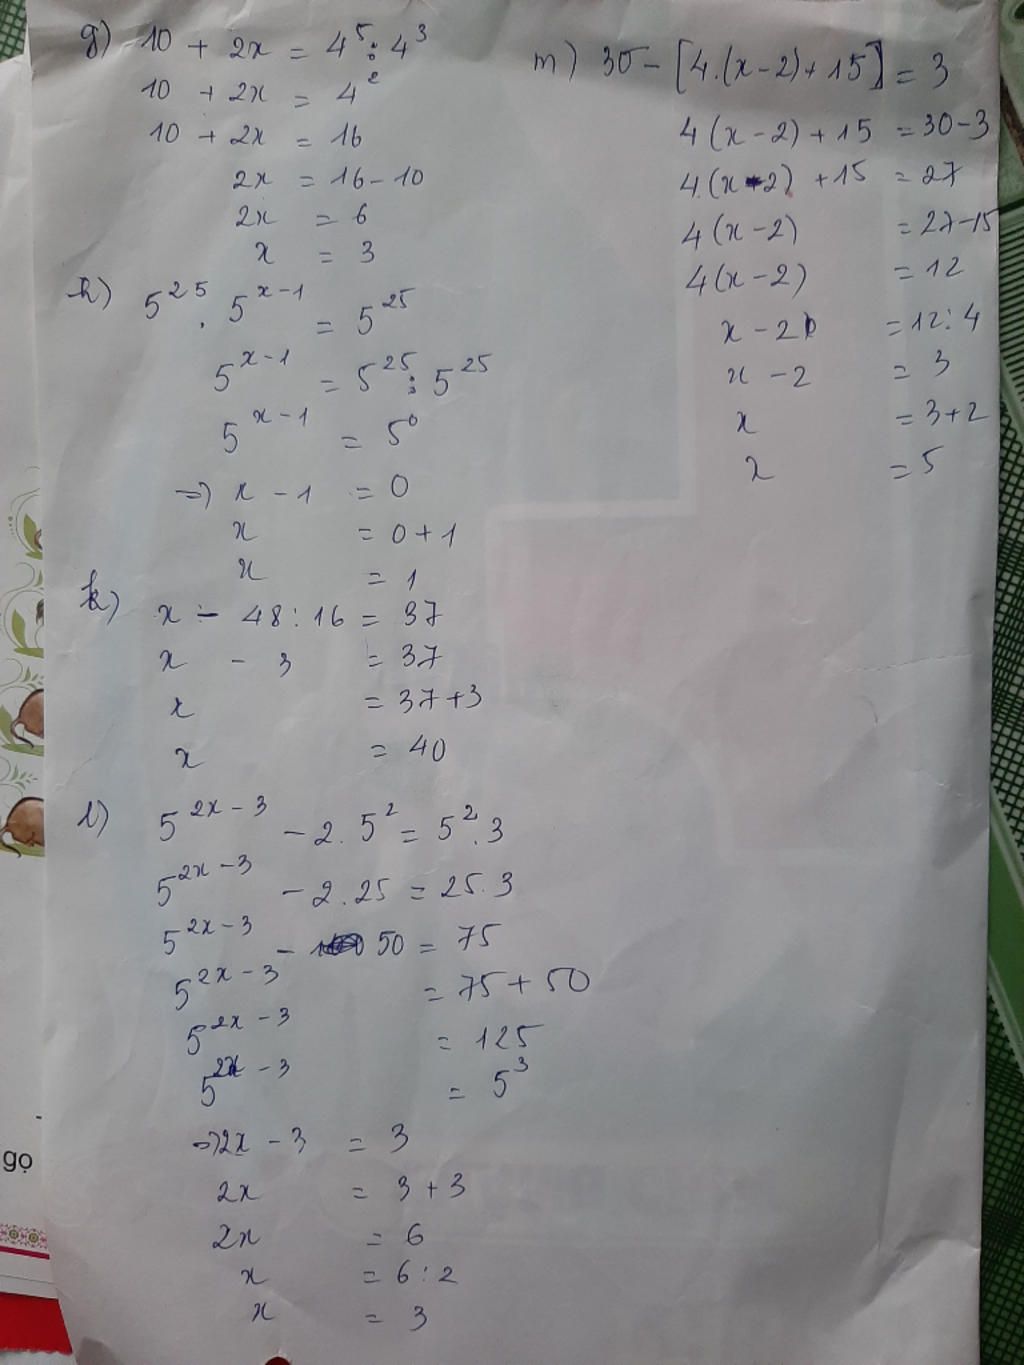 g) 10 + 2x = 4⁵ : 4³
10 + 2x = 4²
10 + 2x = 16
2x = 16 - 10
2x = 6
x = 3
h) 5²⁵ . 5ˣ⁻¹ = 5²⁵
5ˣ⁻¹ = 5²⁵ : 5²⁵
5ˣ⁻¹ = 5⁰
=> x - 1 = 0
x = 0 + 1
x = 1
k) x - 48 : 16 = 37
x - 3 = 37
x = 37 + 3
x = 40
l) 5²ˣ⁻³ - 2 . 5² = 5² . 3
5²ˣ⁻³ - 2 . 25 = 25 . 3
5²ˣ⁻³ - 50 = 75
5²ˣ⁻³ = 75 + 50
5²ˣ⁻³ = 125
5²ˣ⁻³ = 5³
=> 2x - 3 = 3
2x = 3 + 3
2x = 6
x = 6 : 2
x = 3
m) 30 - [4.(x - 2) + 15] = 3
4(x - 2) + 15 = 30 - 3
4.(x - 2) + 15 = 27
4(x - 2) = 27 - 15
4(x - 2) = 12
x - 2 = 12 : 4
x - 2 = 3
x = 3 + 2
x = 5
gọ